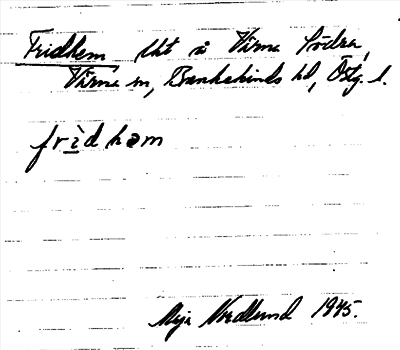 Fridhem lht å Vårna Södra,
Vårna sn, Bankekinds hd, Östg. l.
frìdhəm
Maja Nordlund 1945.